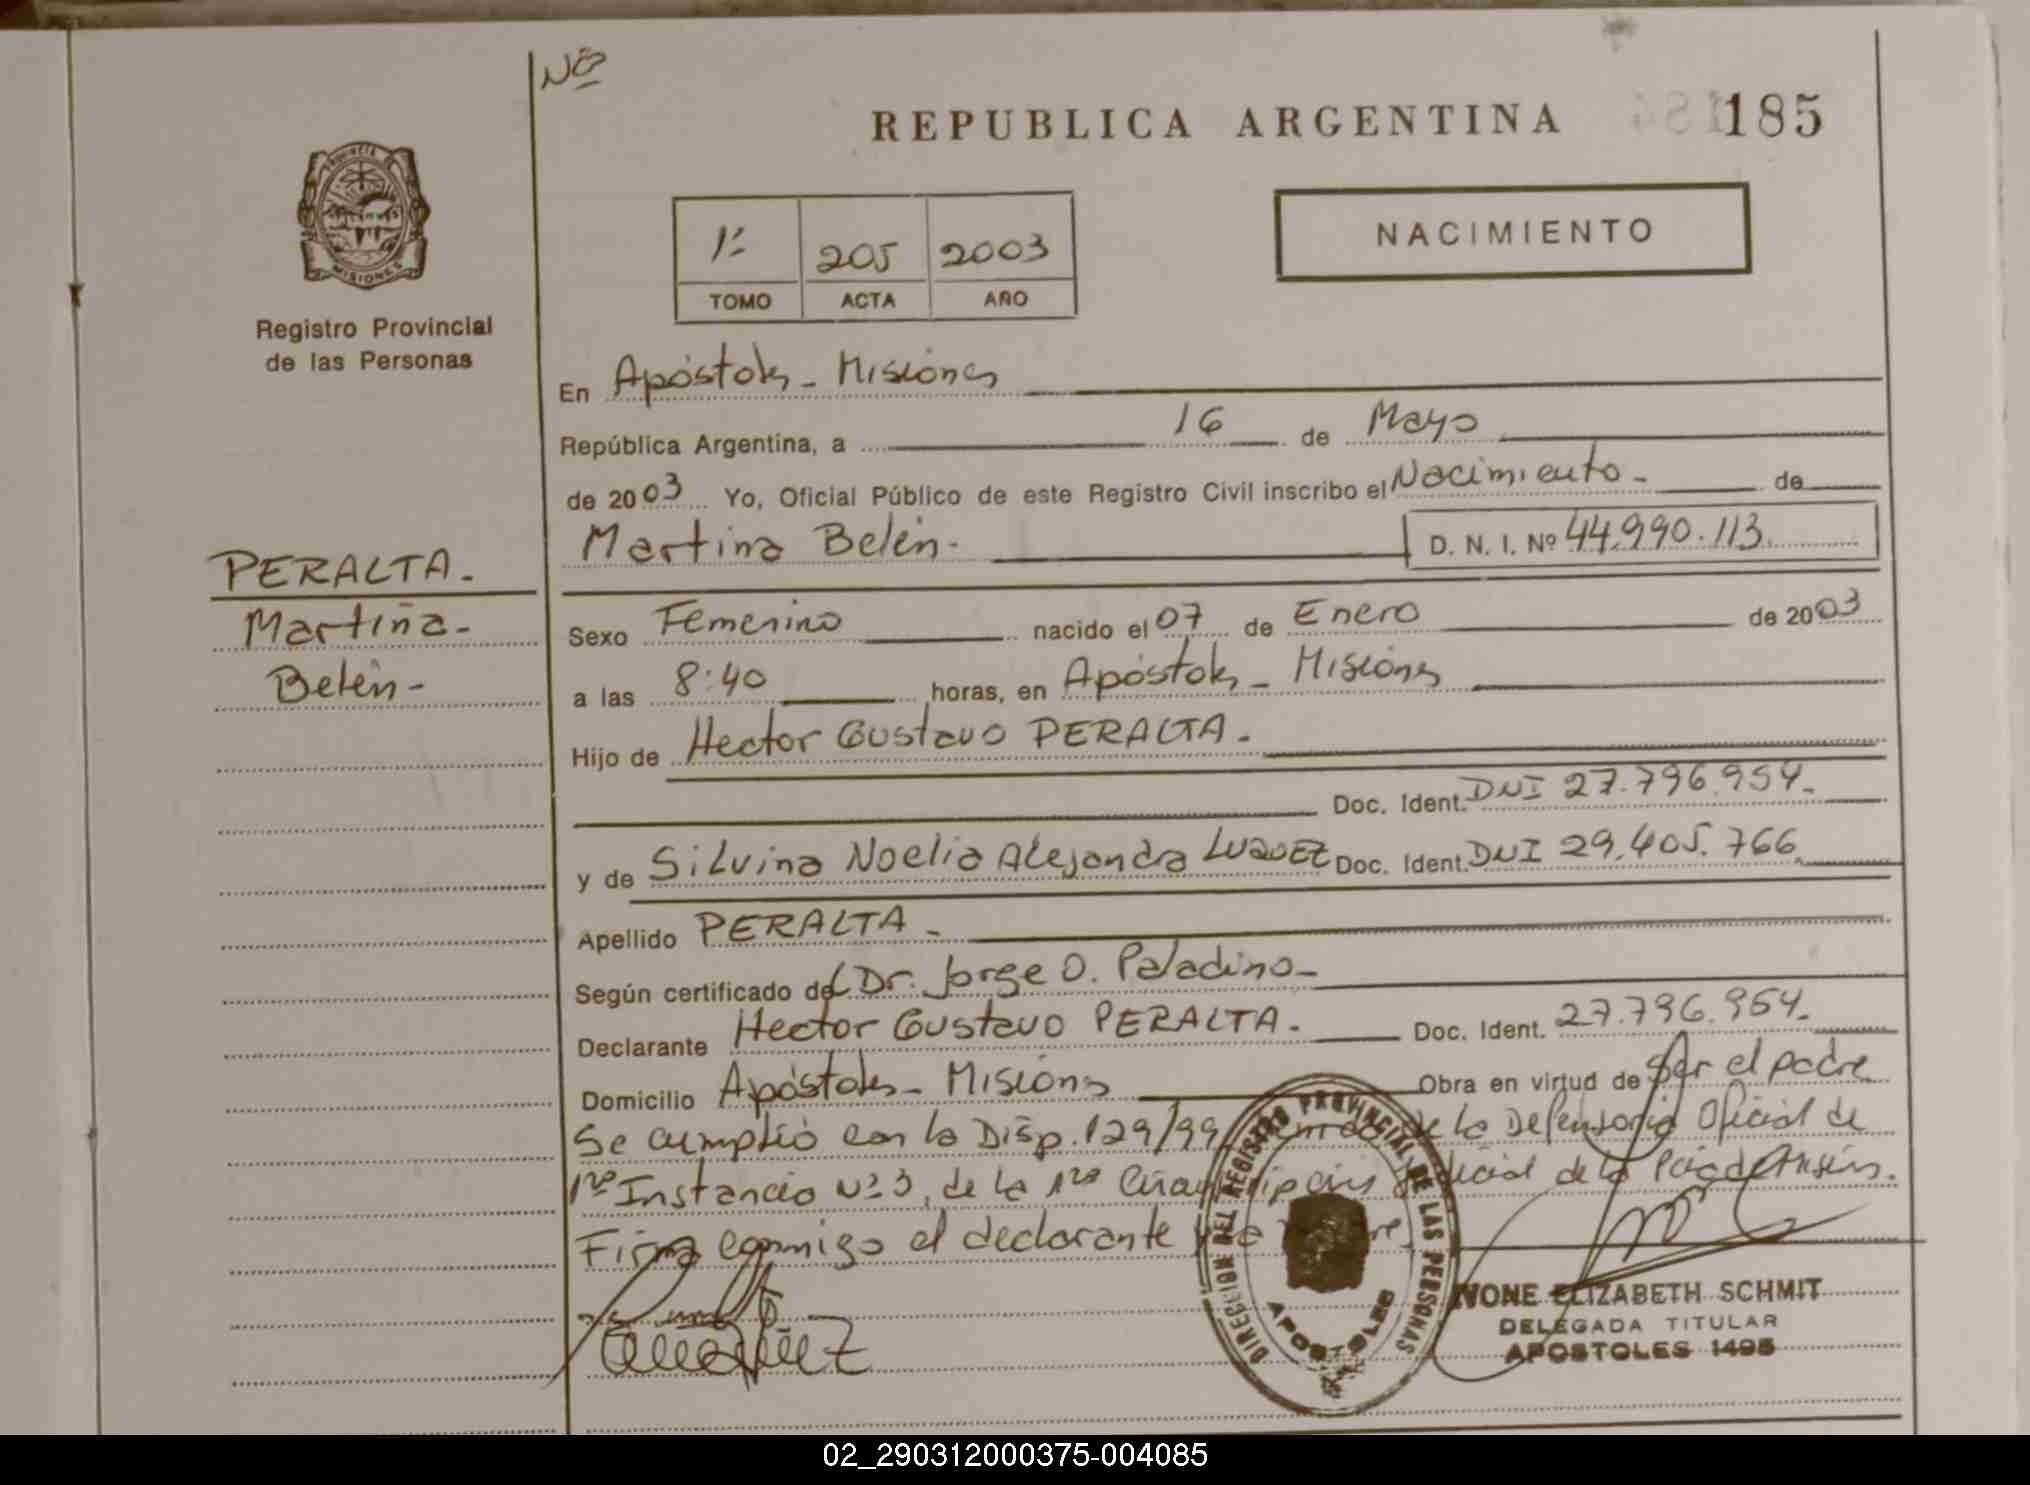 Nº
REPUBLICA ARGENTINA 185
PROVINCIA DE
MISIONES
Registro Provincial
de las Personas
1º 205 2003
TOMO ACTA AÑO
NACIMIENTO
En Apóstoles - Misiones
República Argentina, a 16 de Mayo
de 2003 Yo, Oficial Público de este Registro Civil inscribo el Nacimiento - de
Martina Belén - D. N. I. Nº 44.990.113
PERALTA -
Martina -
Belén -
Sexo Femenino nacido el 07 de Enero de 2003
a las 8:40 horas, en Apóstoles - Misiones
Hijo de Hector Gustavo PERALTA -
Doc. Ident. DNI 27.796.954 -
y de Silvina Noelia Alejandra Doc. Ident. DNI 29.405.766
Apellido PERALTA -
Según certificado del Dr. Jorge O. Paladino -
Declarante Hector Gustavo PERALTA - Doc. Ident. 27.796.954 -
Domicilio Apóstoles - Misiones Obra en virtud de Ser el padre
Se cumplió con la Disp. 129/99 de la Defensoria Oficial de
1ra Instancia Nº 3, de la 1ra Judicial de la
Firma conmigo el declarante
DIRECCION DEL REGISTRO PROVINCIAL DE LAS PERSONAS
APOSTOLES
IVONE ELIZABETH SCHMIT
DELEGADA TITULAR
APOSTOLES 1495
02_290312000375-004085